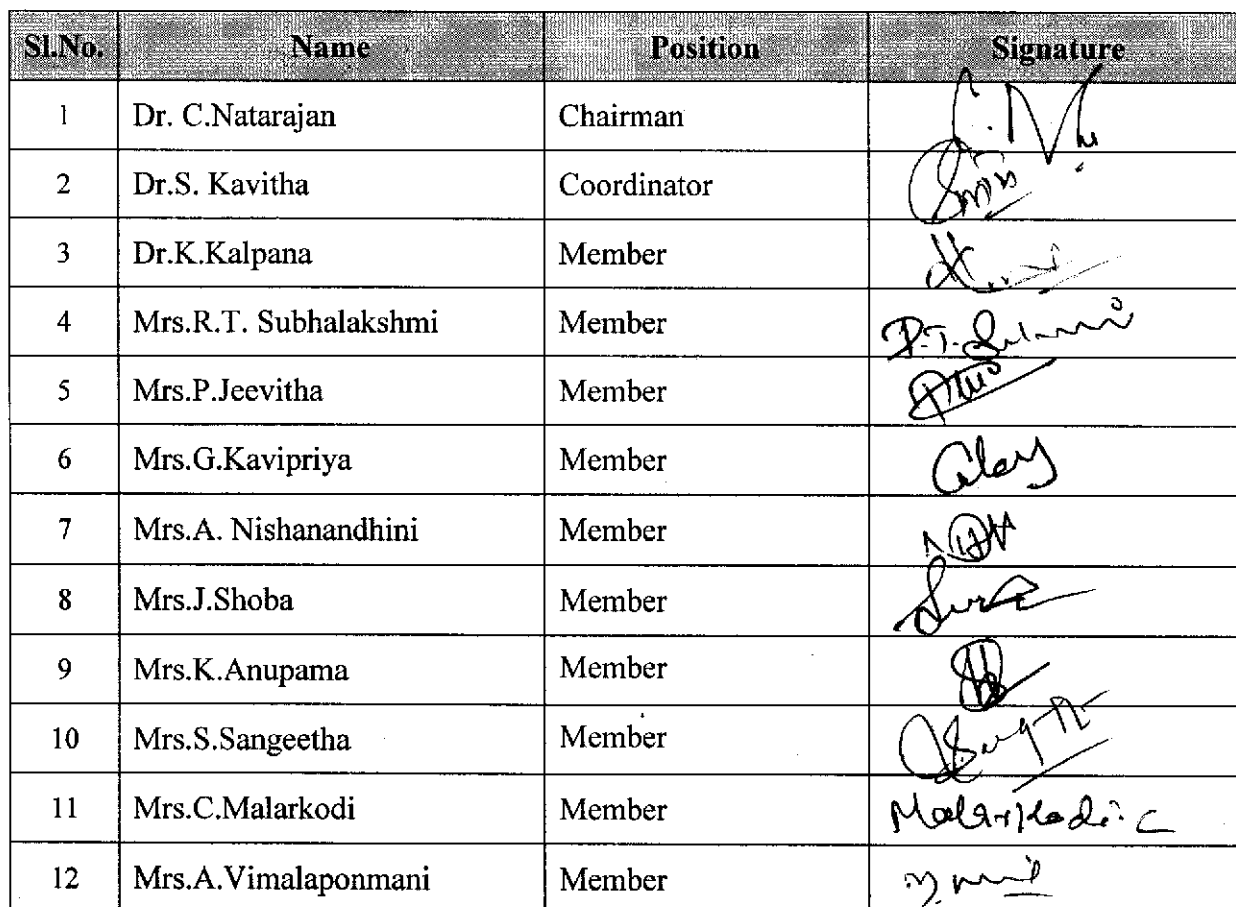 Sl.No. Name Position Signature
1 Dr. C.Natarajan Chairman
2 Dr.S. Kavitha Coordinator
3 Dr.K.Kalpana Member
4 Mrs.R.T. Subhalakshmi Member
5 Mrs.P.Jeevitha Member
6 Mrs.G.Kavipriya Member
7 Mrs.A. Nishanandhini Member
8 Mrs.J.Shoba Member
9 Mrs.K.Anupama Member
10 Mrs.S.Sangeetha Member
11 Mrs.C.Malarkodi Member Malarkodi. C
12 Mrs.A.Vimalaponmani Member